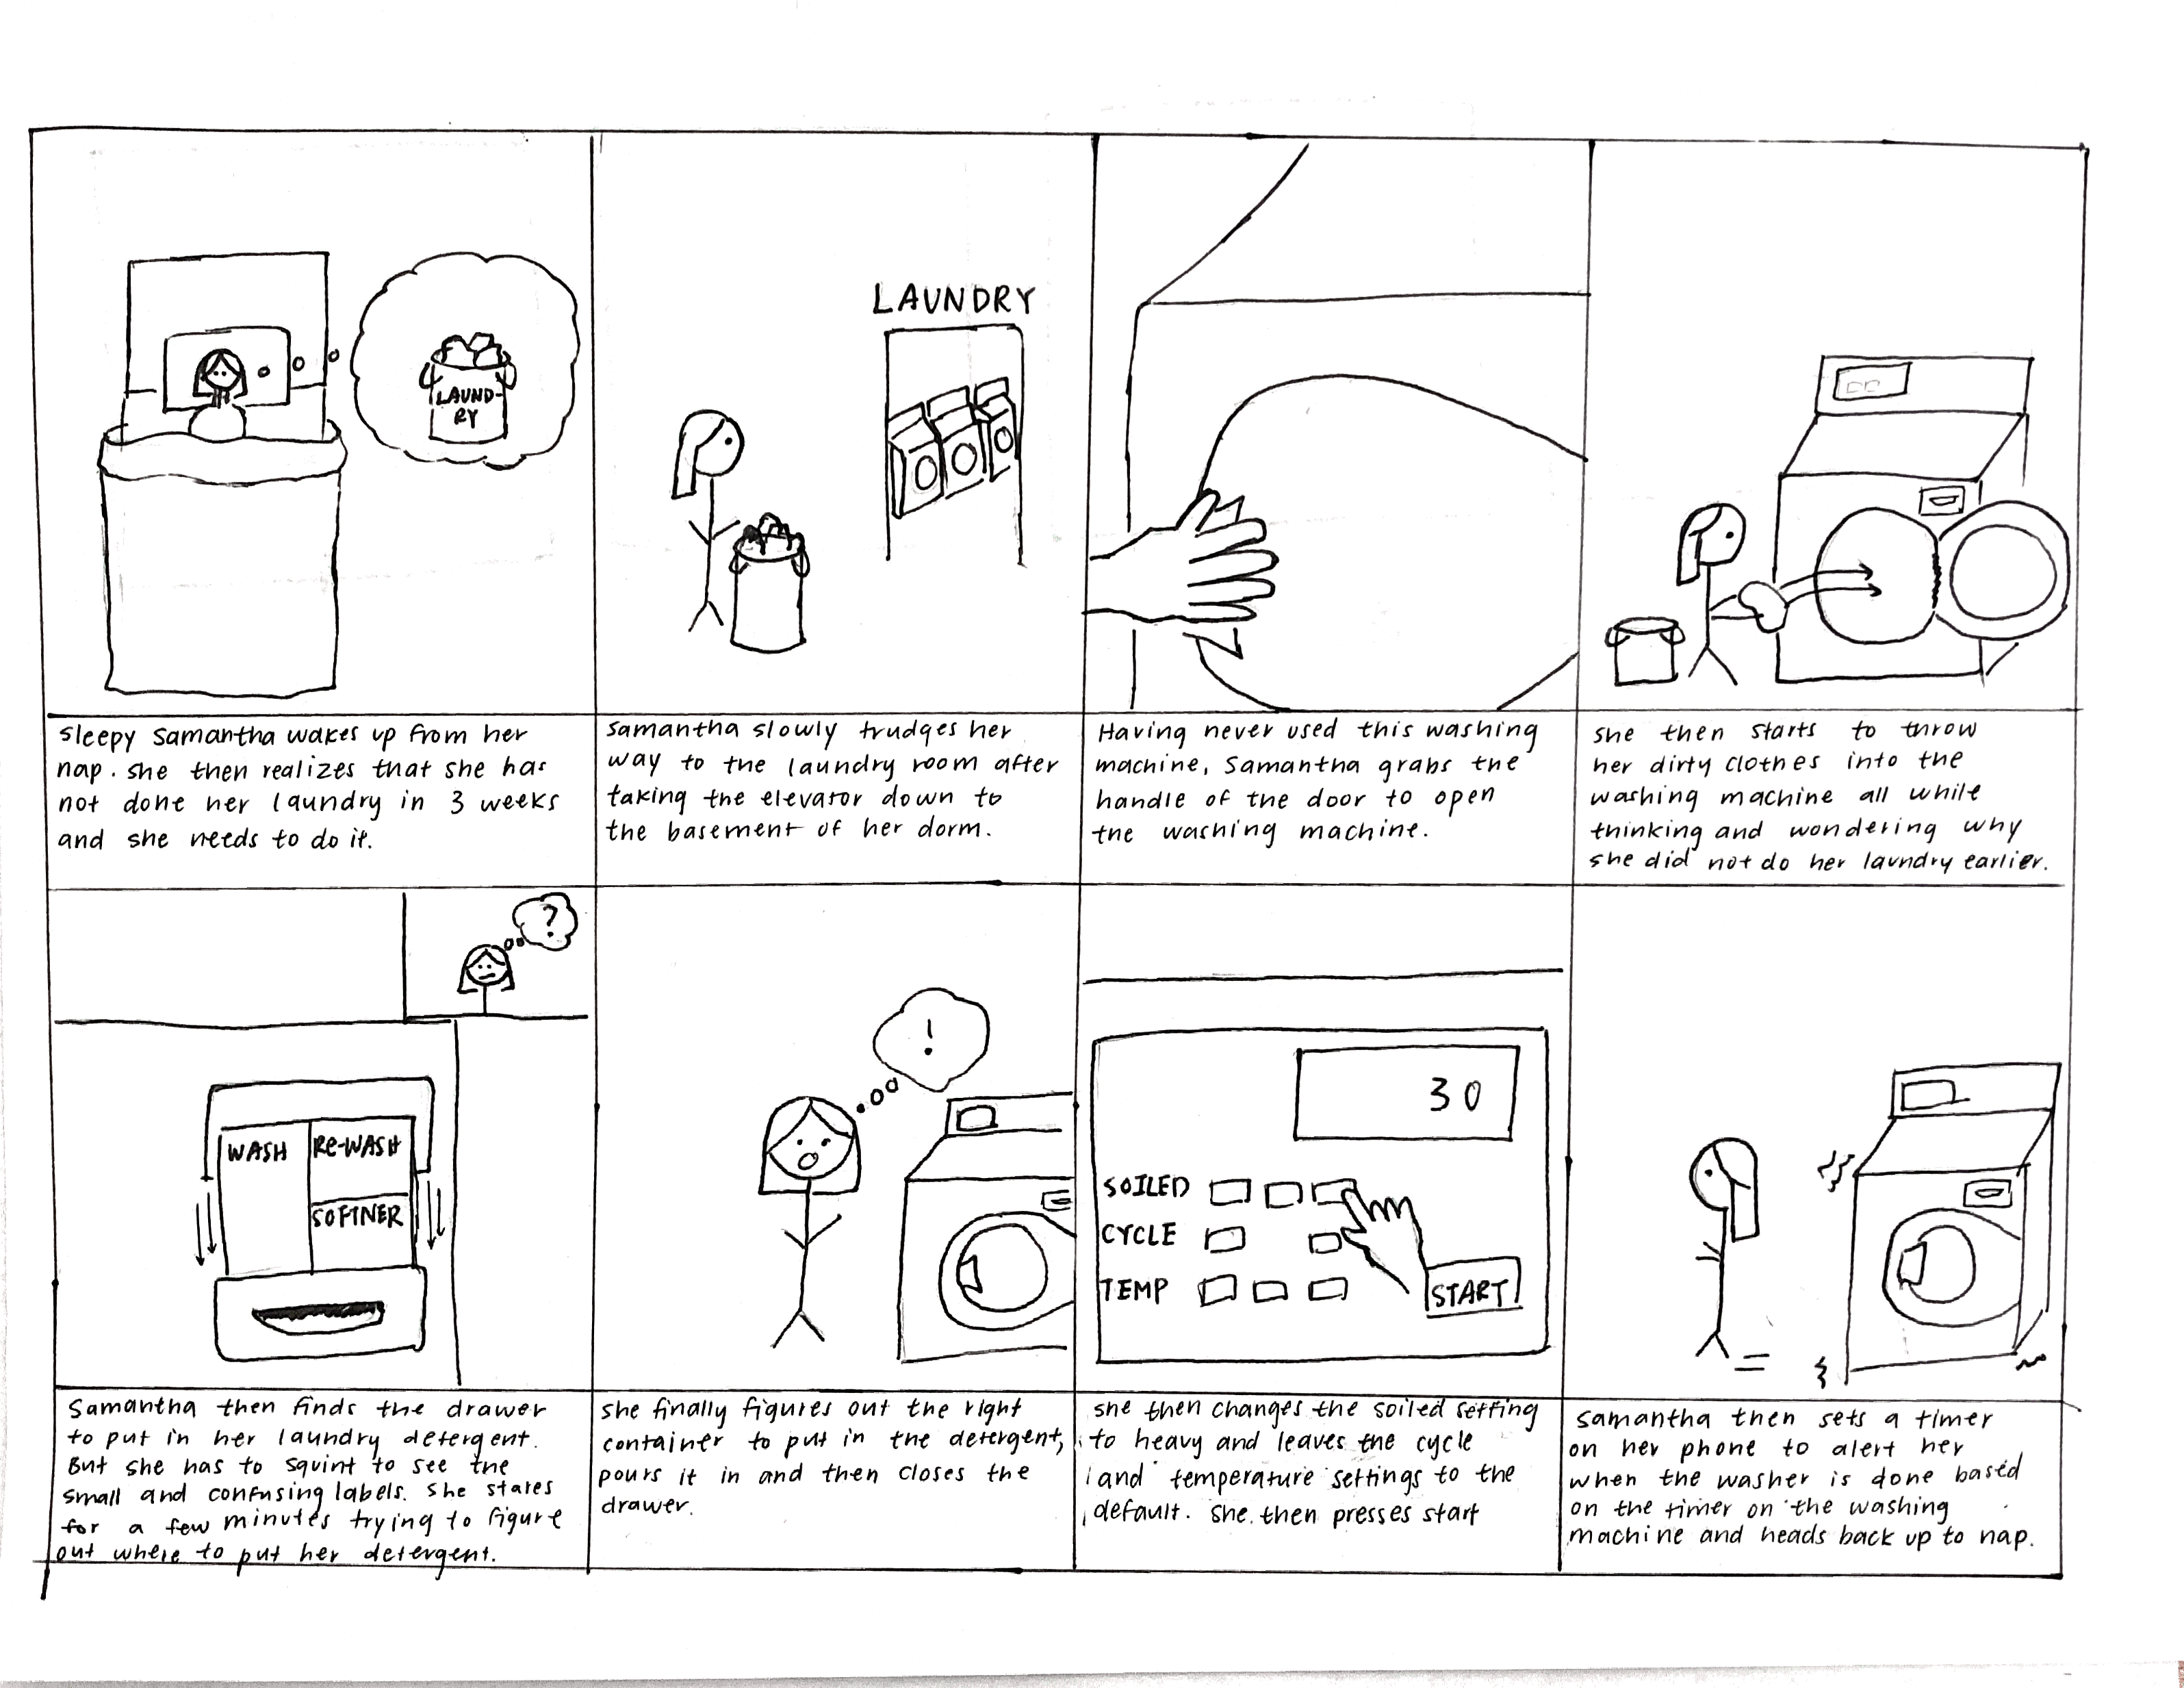 LAUND-
RY
sleepy Samantha wakes up from her
nap. she then realizes that she has
not done her laundry in 3 weeks
and she needs to do it.
LAUNDRY
Samantha slowly trudges her
way to the laundry room after
taking the elevator down to
the basement of her dorm.
Having never used this washing
machine, Samantha grabs the
handle of the door to open
the washing machine.
she then starts to throw
her dirty clothes into the
washing machine all while
thinking and wondering why
she did not do her laundry earlier.
?
WASH
RE-WASH
SOFTNER
Samantha then finds the drawer
to put in her laundry detergent.
But she has to squint to see the
small and confusing labels. She stares
for a few minutes trying to figure
out where to put her detergent.
!
she finally figures out the right
container to put in the detergent,
pours it in and then closes the
drawer.
30
SOILED
CYCLE
TEMP
START
she then changes the soiled setting
to heavy and leaves the cycle
and temperature settings to the
default. She then presses start
Samantha then sets a timer
on her phone to alert her
when the washer is done based
on the timer on the washing
machine and heads back up to nap.